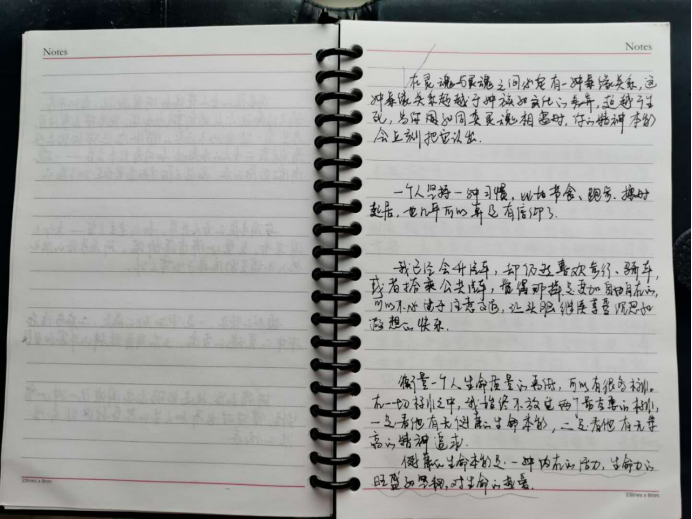 Notes
Notes
在灵魂与灵魂之间必定有一种亲缘关系,这
种亲缘关系超越于种族和文化的差异,超越于生
死,当你遇到同类灵魂相遇时,你的精神本能
会立刻把它认出。
一个人坚持一种习惯,比如节食、跑步、按时
起居,也几乎可以算是有信仰了。
我已经会开汽车,却仍然喜欢步行、骑车,
或者搭乘公共汽车,觉得那样是更加自由自在的,
可以不必请于注意交通,让头脑继续享受沉思和
遐想的快乐。
衡量一个人生命质量的高低,可以有很多标准。
在一切标准之中,我始终不放弃两个最重要的标准,
一是看他有无健康的生命本能,二是看他有无崇
高的精神追求。
健康的生命本能是一种内在的活力,生命力的
旺盛和坚韧,对生命的热爱。